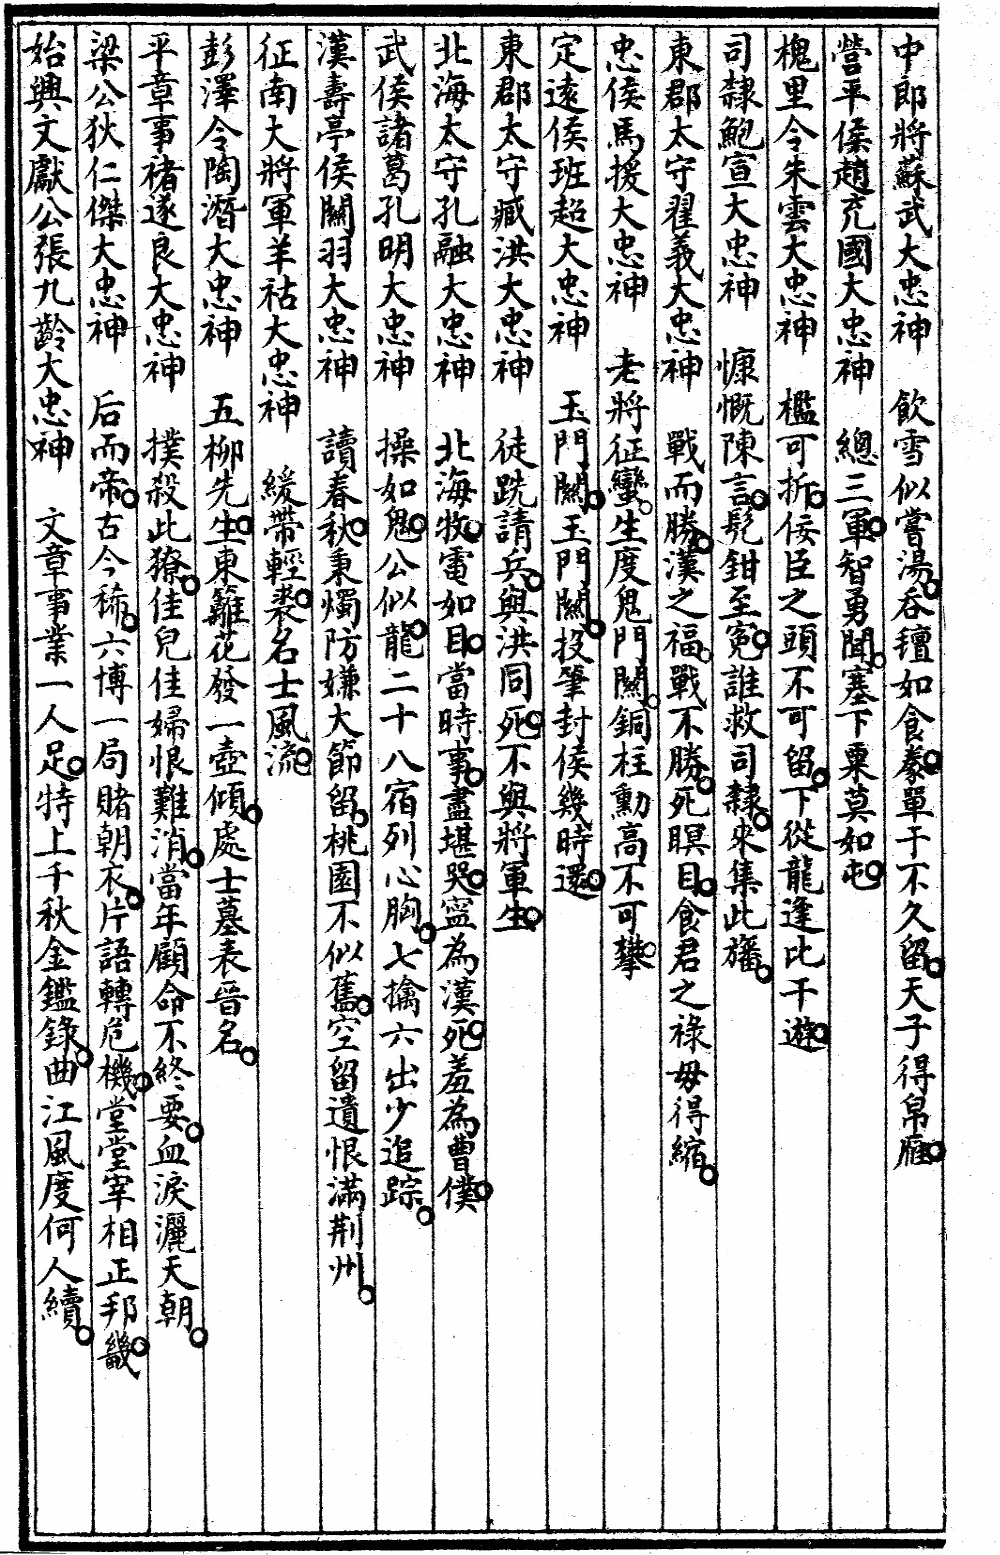 中郎將蘇武大忠神　飲雪似嘗湯呑氊如食豢單于不久留天子得帛雁
營平侯趙充國大忠神　總三軍智勇聞塞下粟莫如屯
槐里令朱雲大忠神　檻可折佞臣之頭不可留下從龍逢比干遊
司隸鮑宣大忠神　慷慨陳言髡鉗至冤誰救司隸來集此旛
東郡太守翟義大忠神　戰而勝漢之福戰不勝死瞑目食君之祿毋得縮
忠侯馬援大忠神　老將征蠻生度鬼門關銅柱勳高不可攀
定遠侯班超大忠神　玉門關玉門關投筆封侯幾時還
東郡太守臧洪大忠神　徒跣請兵與洪同死不與將軍生
北海太守孔融大忠神　北海牧電如目當時事盡堪哭寧為漢死羞為曹僕
武侯諸葛孔明大忠神　操如鬼公似龍二十八宿列心胸七擒六出少追踪
漢壽亭侯關羽大忠神　讀春秋秉燭防嫌大節留桃園不似舊空留遺恨滿荆州
征南大將軍羊祜大忠神　緩帶輕裘名士風流
彭澤令陶潛大忠神　五柳先生東籬花發一壺傾處士墓表晉名
平章事褚遂良大忠神　撲殺此獠佳兒佳婦恨難消當年顧命不終要血淚灑天朝
梁公狄仁傑大忠神　后而帝古今稀六博一局賭朝衣片語轉危機堂堂宰相正邦畿
始興文獻公張九齡大忠神　文章事業一人足特上千秋金鑑錄曲江風度何人續